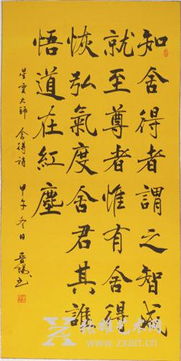 知舍得者謂之智成
就至尊者惟有舍得
恢弘氣度舍君其誰
悟道在紅塵
星雲大師 舍得詩 甲午冬日